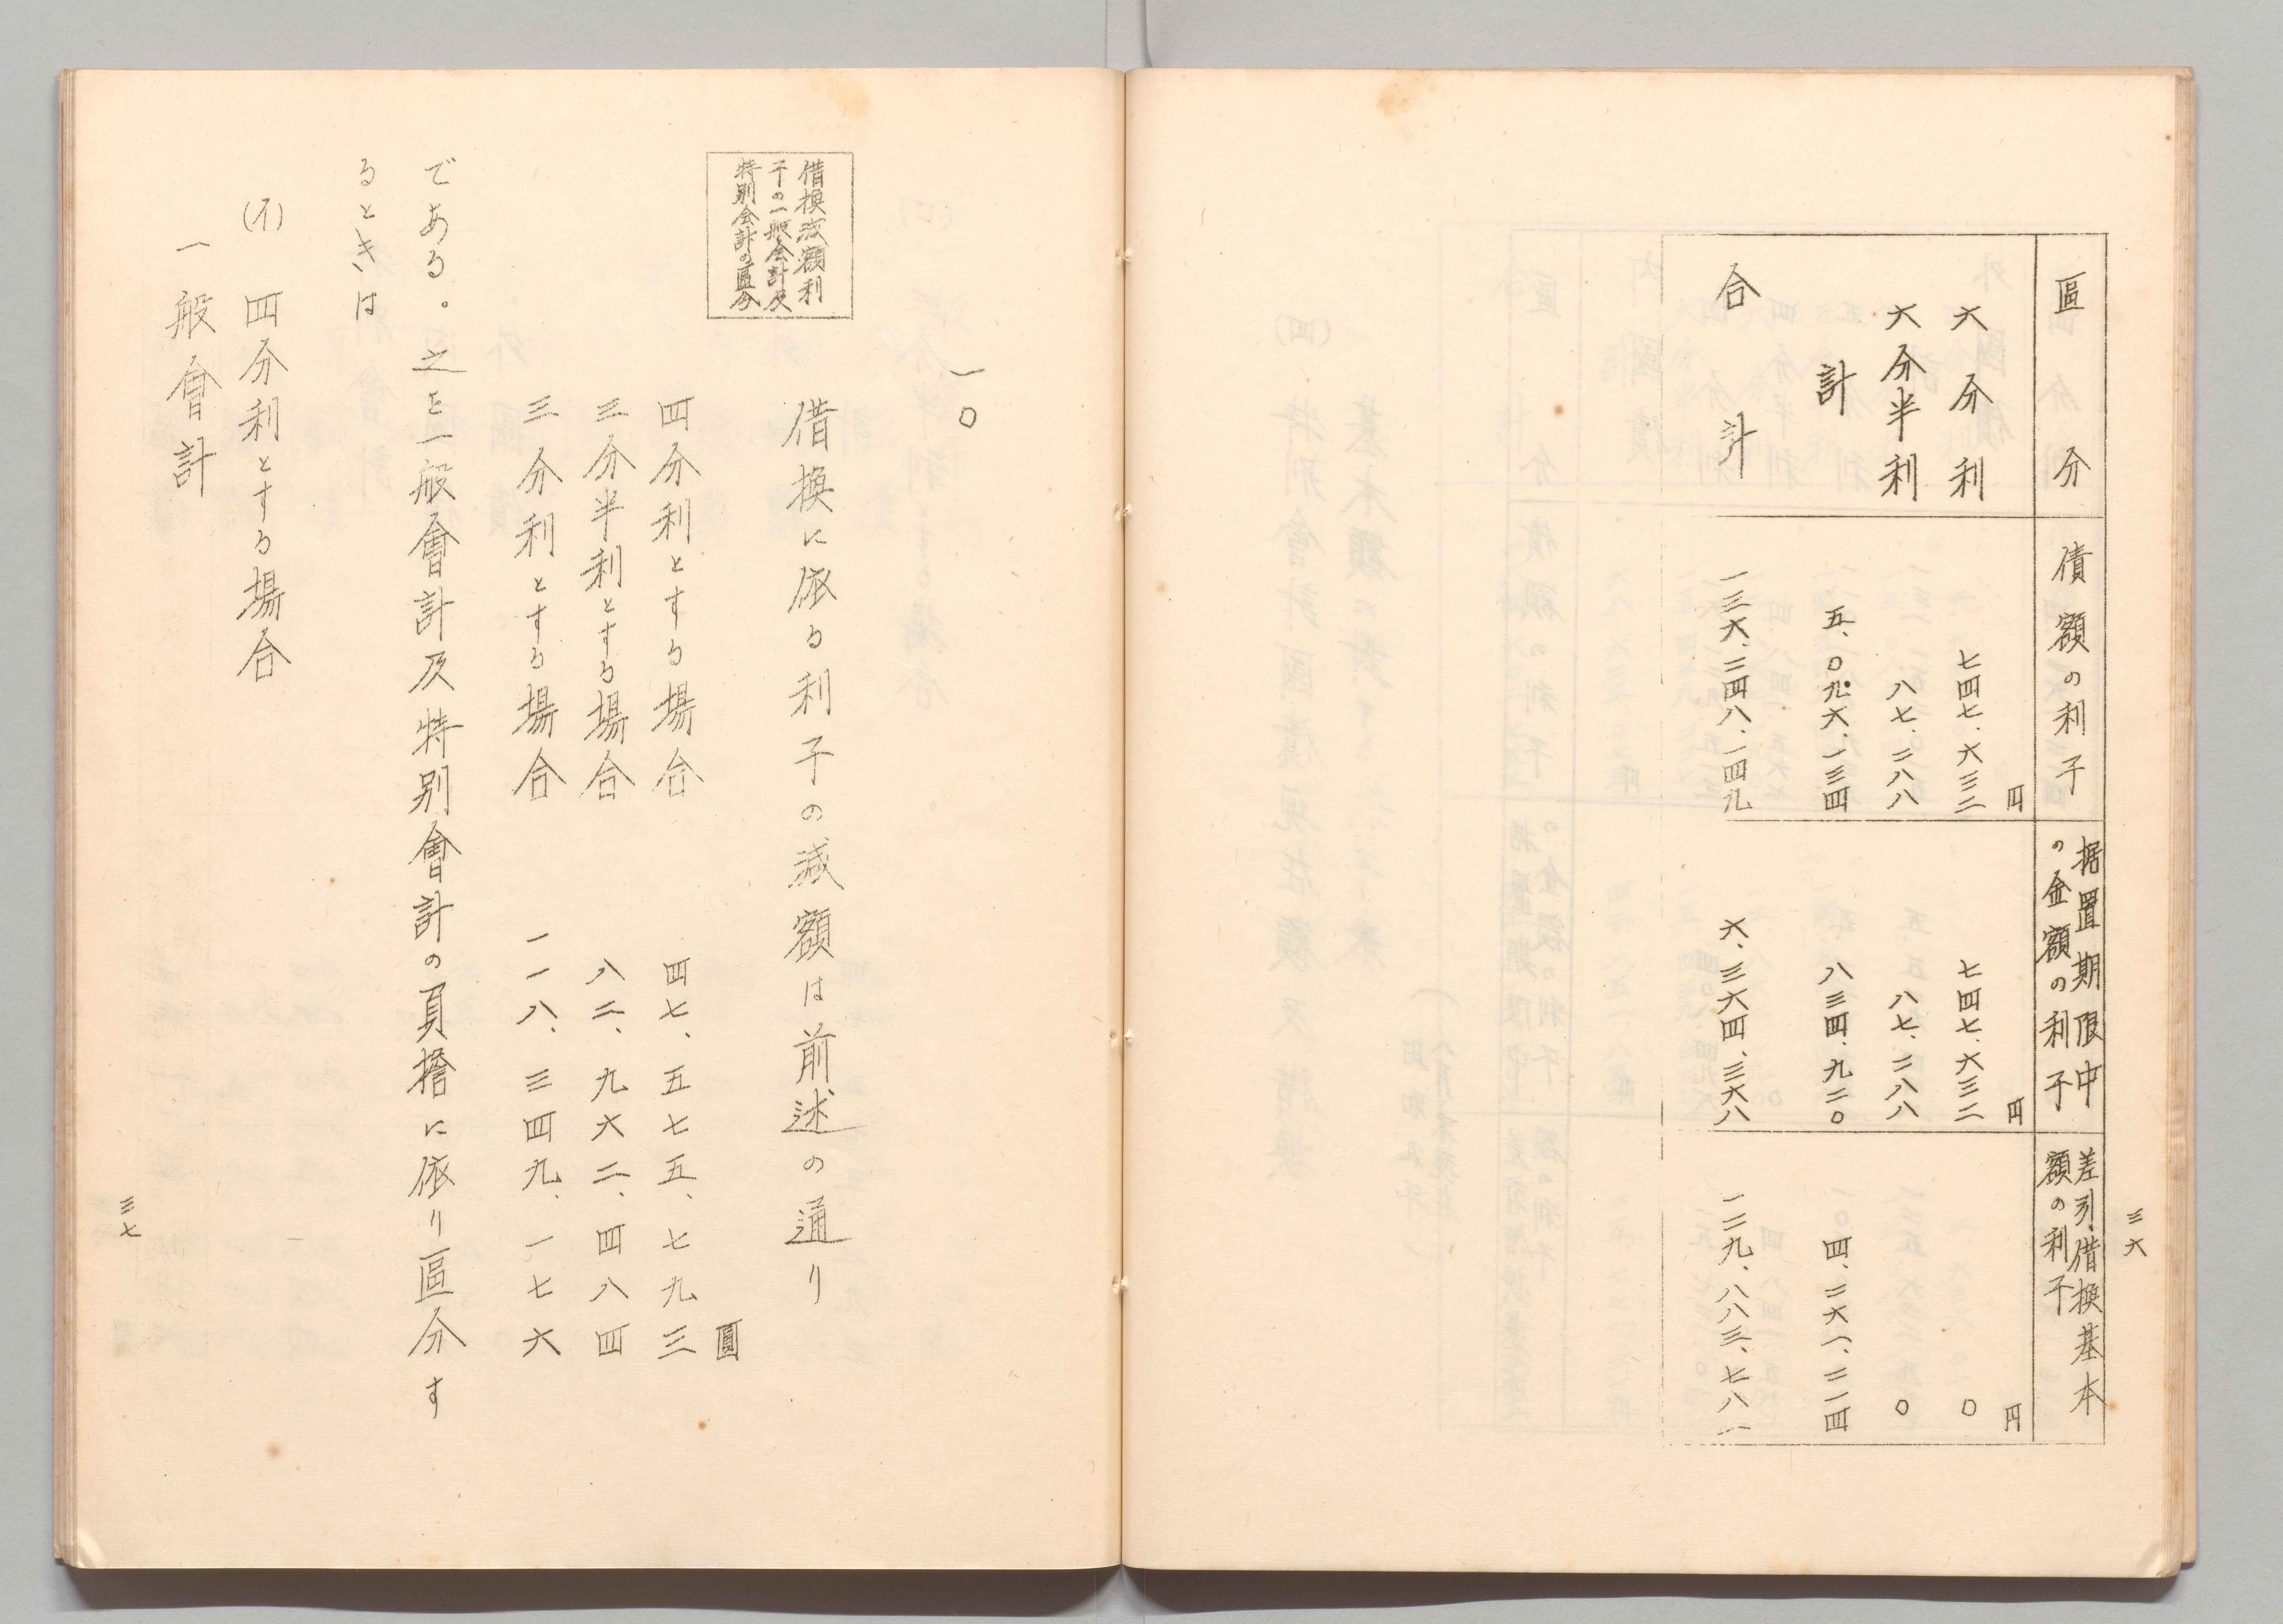 三六
區分 債額の利子 据置期限中の金額の利子 差引借換基本額の利子
円 円 円
六分利 七四七、六三二 七四七、六三二 〇
六分半利 八七、二八八 八七、二八八 〇
計 五、〇九六、一三四 八三四、九二〇 四、二六一、二一四
合計 一三六、二四八、一四九 六、三六四、三六八 一二九、八八三、七八一
一〇
借換減額利
子の一般会計及
特別会計の區分
借換に依る利子の減額は前述の通り
圓
四分利とする場合 四七、五七五、七九三
三分半利とする場合 八二、九六二、四八四
三分利とする場合 一一八、三四九、一七六
である。之を一般會計及特別會計の負擔に依り區分す
るときは
(イ) 四分利とする場合
一般會計
三七